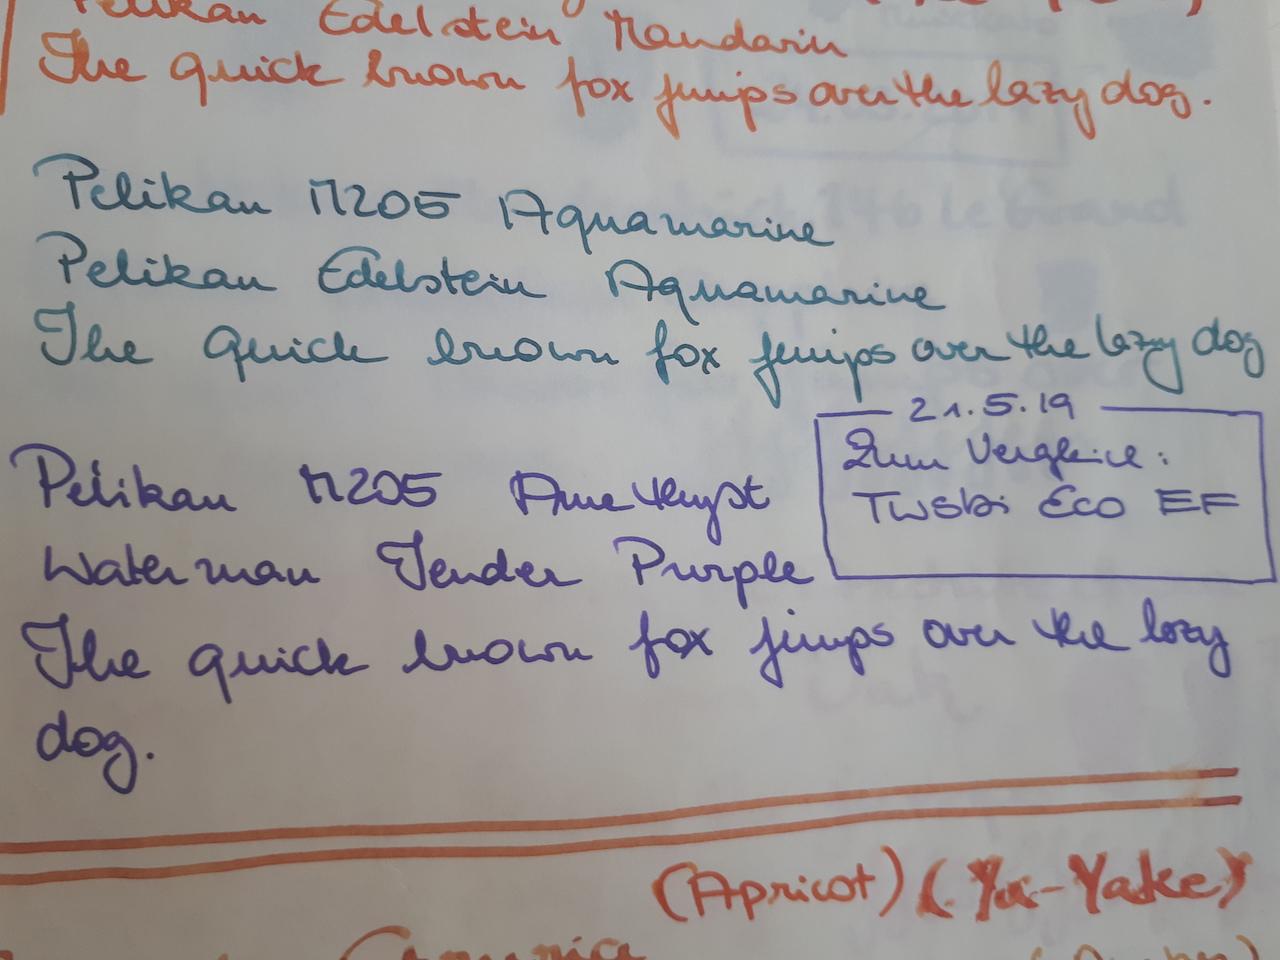 Pelikan Edelstein Mandarin
The quick brown fox jumps over the lazy dog.
Pelikan M205 Aquamarine
Pelikan Edelstein Aquamarine
The quick brown fox jumps over the lazy dog
21.5.19
Zum Vergleich:
TWSBi Eco EF
Pelikan M205 Amethyst
Waterman Tender Purple
The quick brown fox jumps over the lazy
dog.
(Apricot) (Yu-Yake)